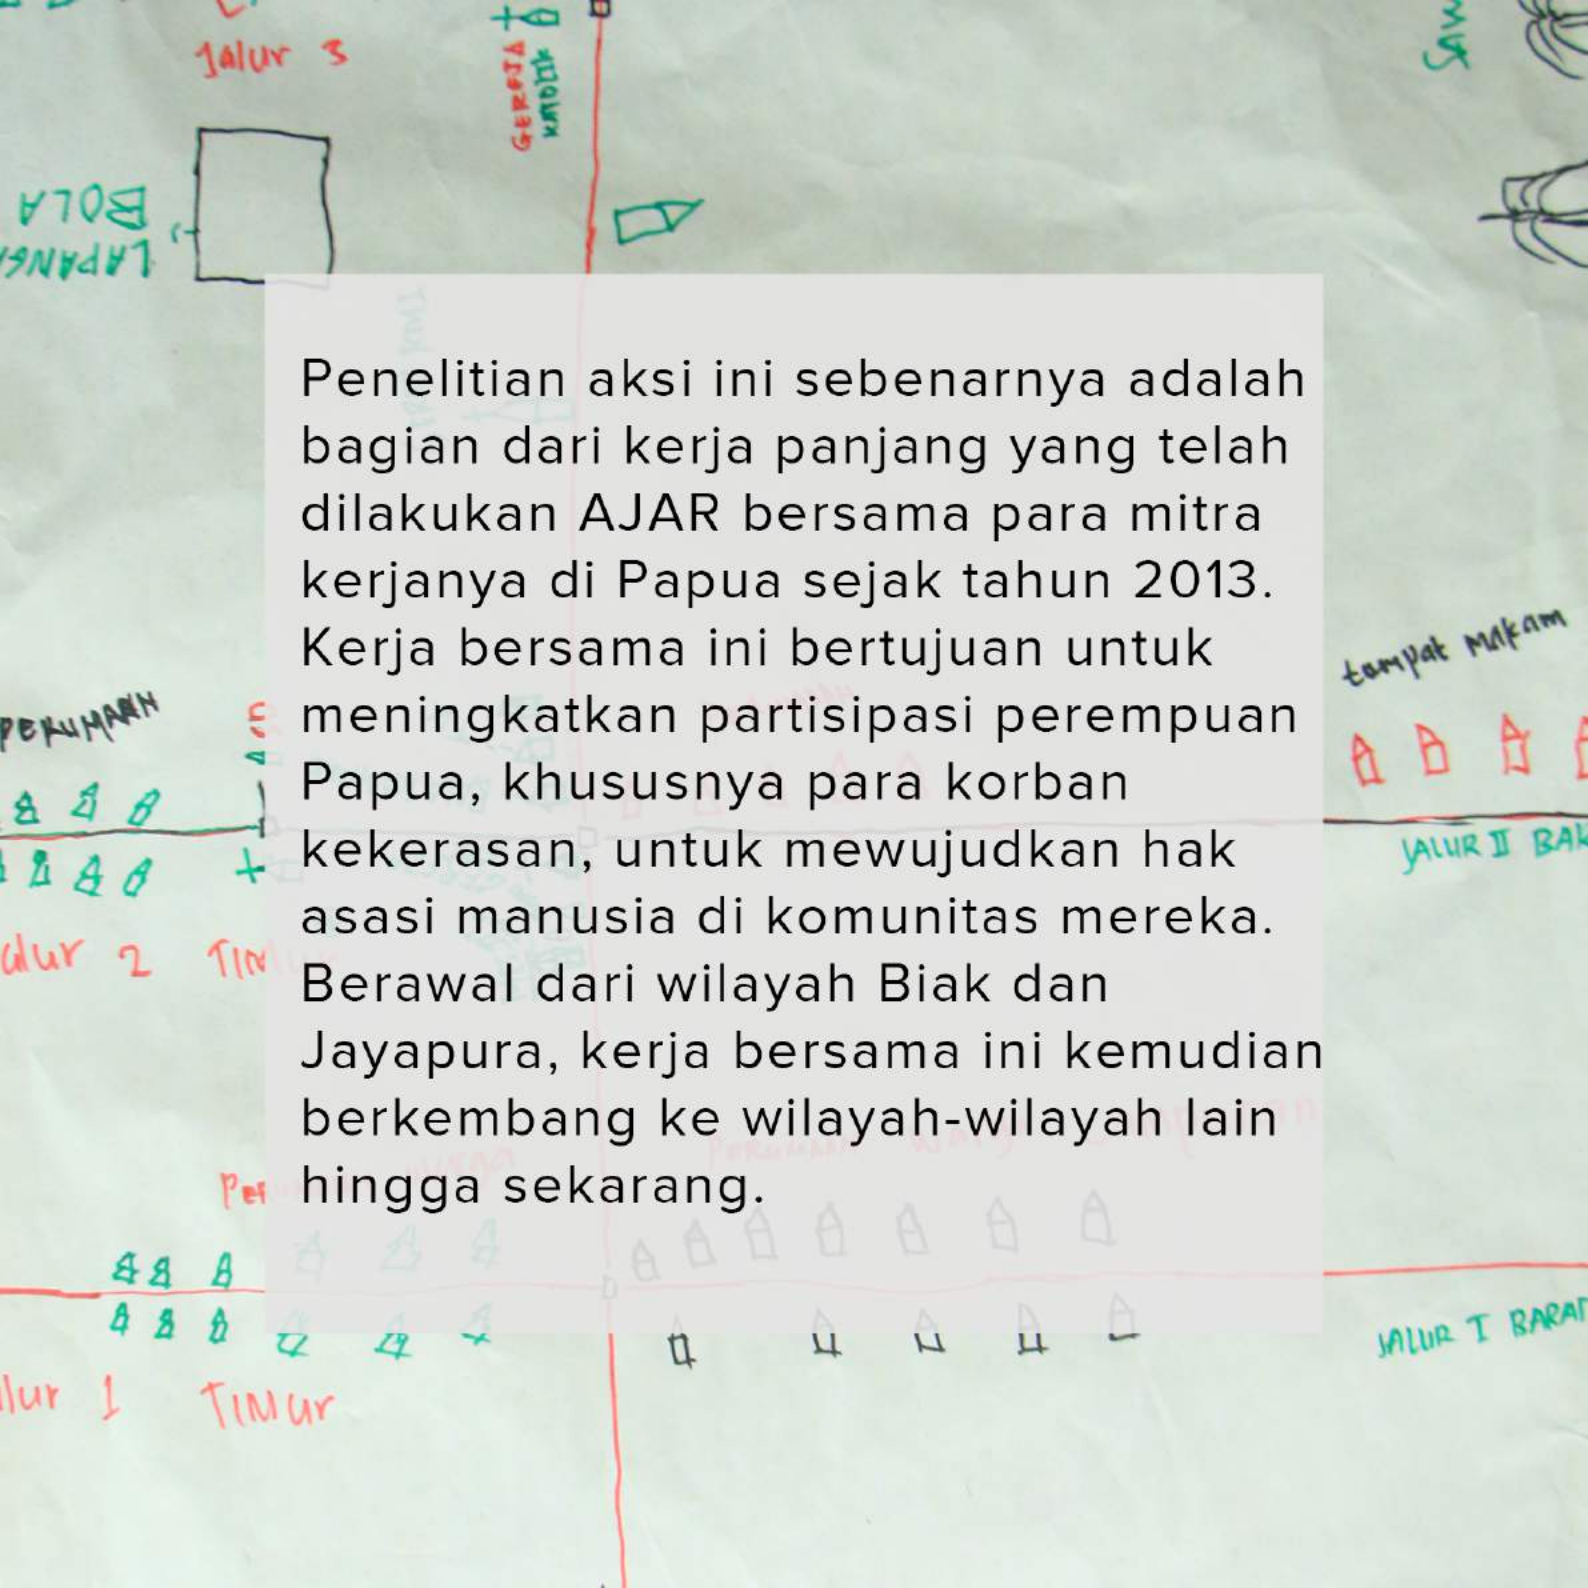 Jalur 3
GEREJA
KATOLIK
LAPANGA
BOLA
Penelitian aksi ini sebenarnya adalah
bagian dari kerja panjang yang telah
dilakukan AJAR bersama para mitra
kerjanya di Papua sejak tahun 2013.
Kerja bersama ini bertujuan untuk
meningkatkan partisipasi perempuan
Papua, khususnya para korban
kekerasan, untuk mewujudkan hak
asasi manusia di komunitas mereka.
Berawal dari wilayah Biak dan
Jayapura, kerja bersama ini kemudian
berkembang ke wilayah-wilayah lain
hingga sekarang.
tempat MAKAM
PERUMAHAN
JALUR II BAR
alur 2 TIMur
JALUR I BARAT
lur 1 TIMur